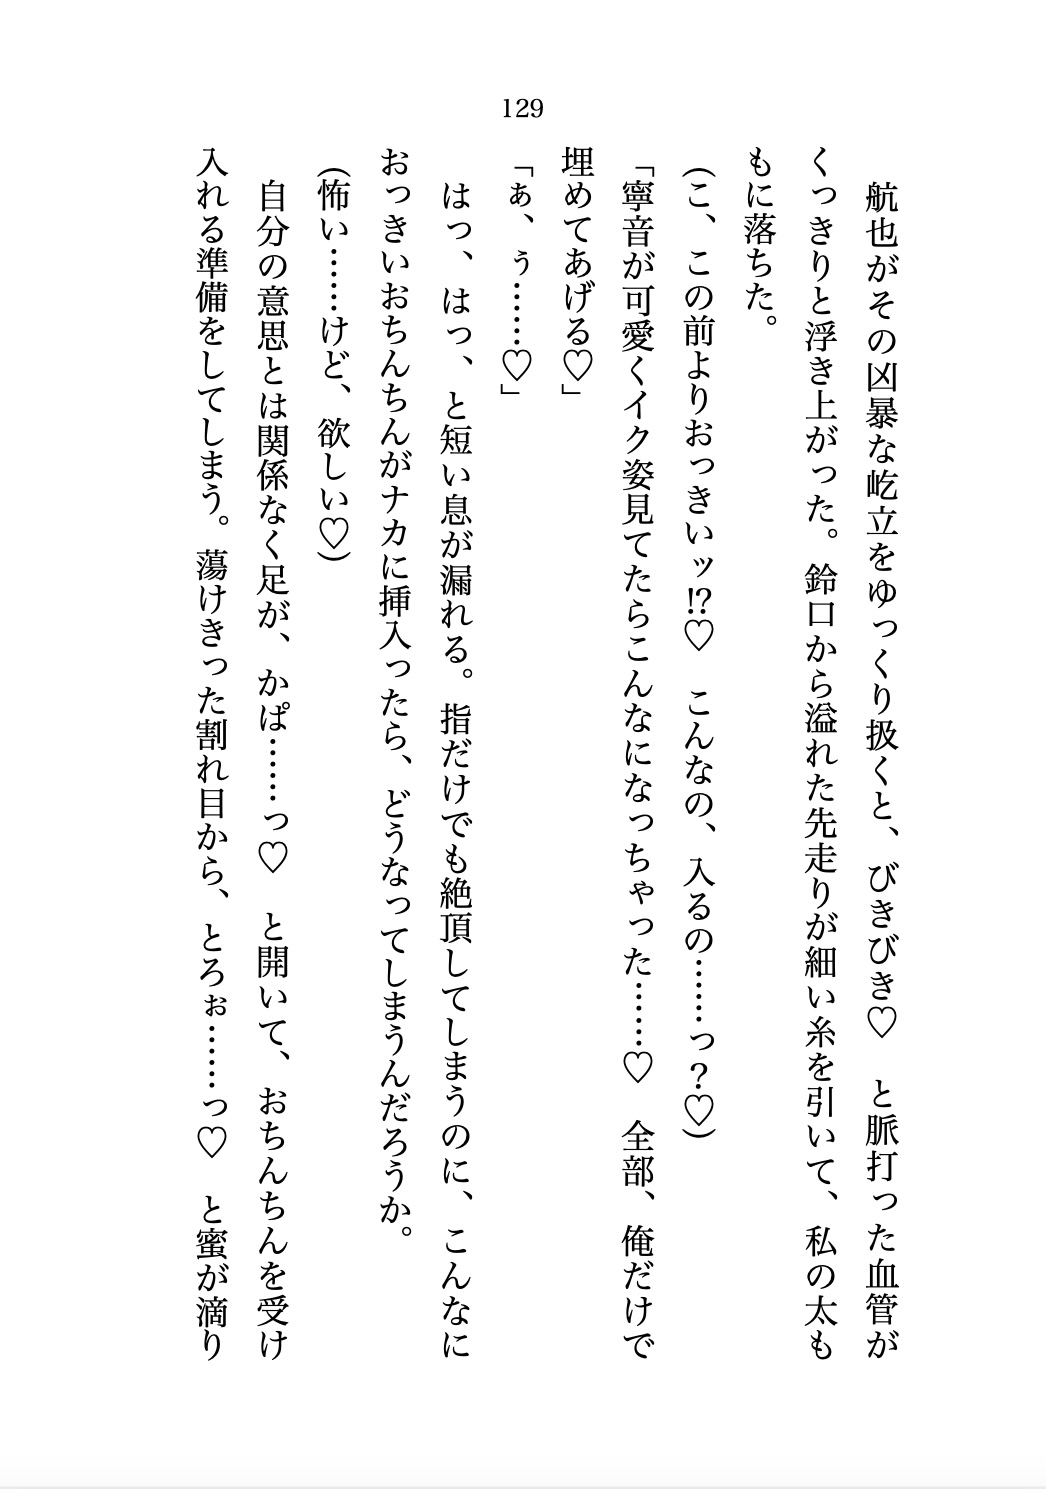 129
　航也がその凶暴な屹立をゆっくり扱くと、びきびき♡　と脈打った血管が
くっきりと浮き上がった。鈴口から溢れた先走りが細い糸を引いて、私の太も
もに落ちた。
（こ、この前よりおっきぃッ⁉♡　こんなの、入るの……っ？♡）
「寧音が可愛くイク姿見てたらこんなになっちゃった……♡　全部、俺だけで
埋めてあげる♡」
「ぁ、ぅ……♡」
　はっ、はっ、と短い息が漏れる。指だけでも絶頂してしまうのに、こんなに
おっきいおちんちんがナカに挿入ったら、どうなってしまうんだろうか。
（怖い……けど、欲しい♡）
　自分の意思とは関係なく足が、かぱ……っ♡　と開いて、おちんちんを受け
入れる準備をしてしまう。蕩けきった割れ目から、とろぉ……っ♡　と蜜が滴り